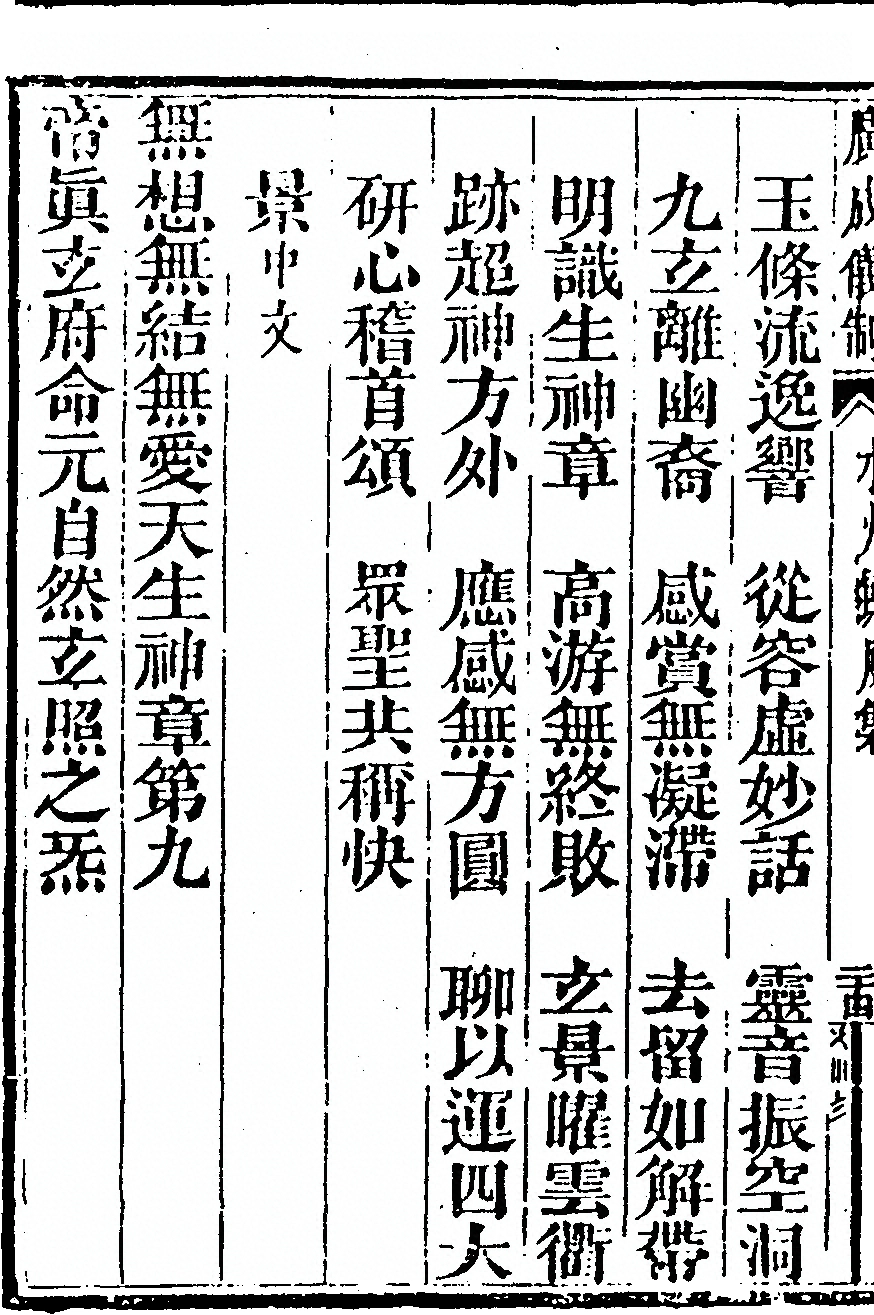 廣成儀制
玉條流逸響 從容虛妙話 靈音振空洞
九玄離幽裔 感賞無凝滯 去留如解帶
明識生神章 高游無終敗 玄景曜雲衢
跡超神方外 應感無方圓 聊以運四大
研心稽首頌 眾聖共稱快
景中文
無想無結無愛天生神章第九
帝眞玄府命元自然玄照之炁